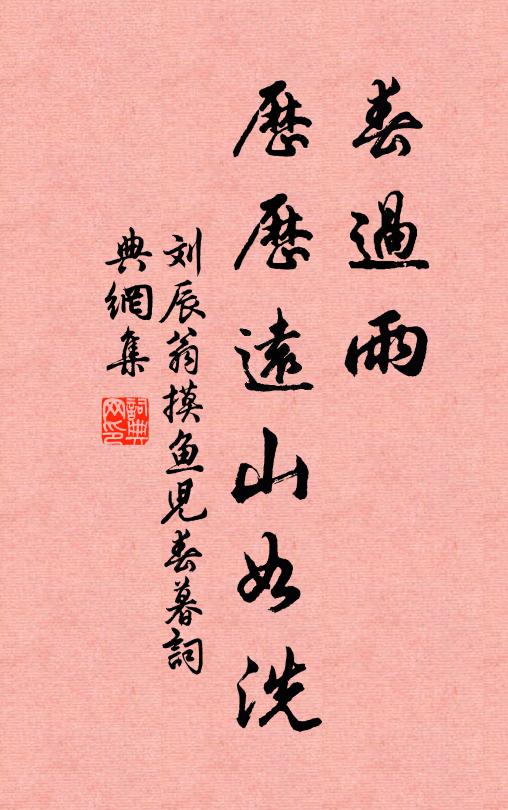 春過雨
歷歷遠山如洗
刘辰翁摸鱼兒春暮詞
典網集
詞典网印